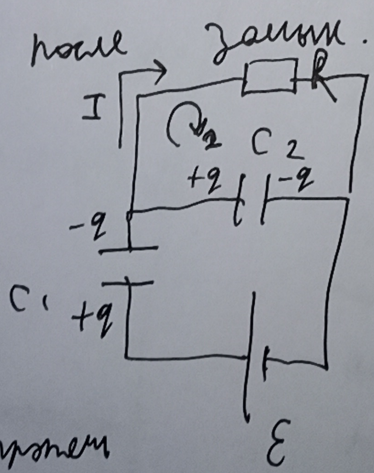 после замык.
I
R
2
C2
+q -q
-q
C1
+q
ε